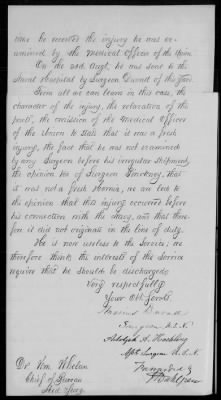 time he received the injury he was ex-
amined by the Medical Officer of the Union
On the 2nd Augt. he was sent to the
Naval Hospital by Surgeon Duvall of this Yard.
From all we can learn in this case, the
character of the injury, the relaxation of the
parts, the omission of the Medical Officer
of the Union to state that it was a fresh
injury, the fact that he was not examined
by any Surgeon before his irregular Shipment,
the opinion too of Surgeon Pinckney, that
it was not a fresh Hernia, we are led to
the opinion that this injury occurred before
his connection with the Navy, and that there-
fore it did not originate in the line of duty.
He is now useless to the Service, we
therefore think the interests of the Service
require that he should be discharged.
Very respectfully
Your Obt. Servts.
Marius Duvall
Surgeon U.S.N.
Adolph A. Hoehling
Asst. Surgeon U.S.N.
Dr. Wm. Whelan
Chief of Bureau
Med. Surg.